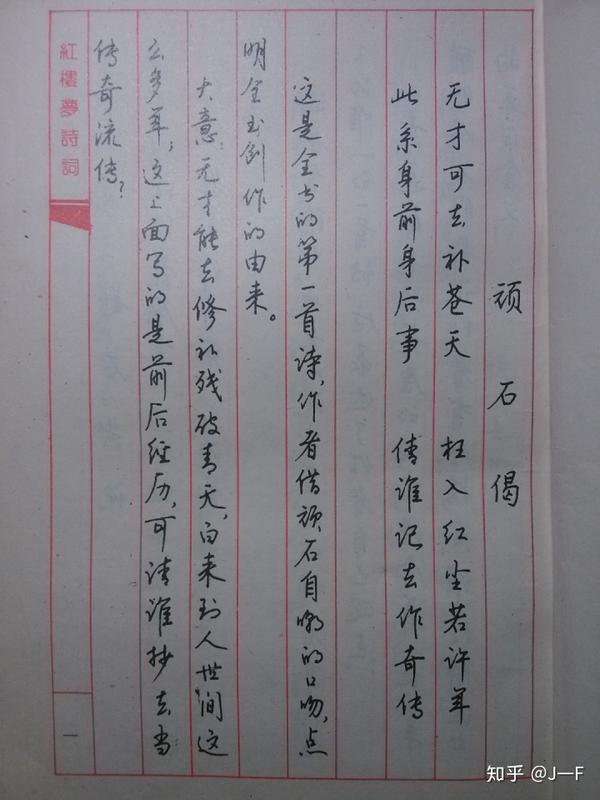 顽石偈
无才可去补苍天 枉入红尘若许年
此系身前身后事 倩谁记去作奇传
这是全书的第一首诗，作者借顽石自嘲的口吻，点
明全书创作的由来。
大意：无才能去修补残破青天，白来到人世间这
么多年，这上面写的是前后经历，可请谁抄去当
传奇流传？
紅樓夢詩詞
一
知乎 @J—F